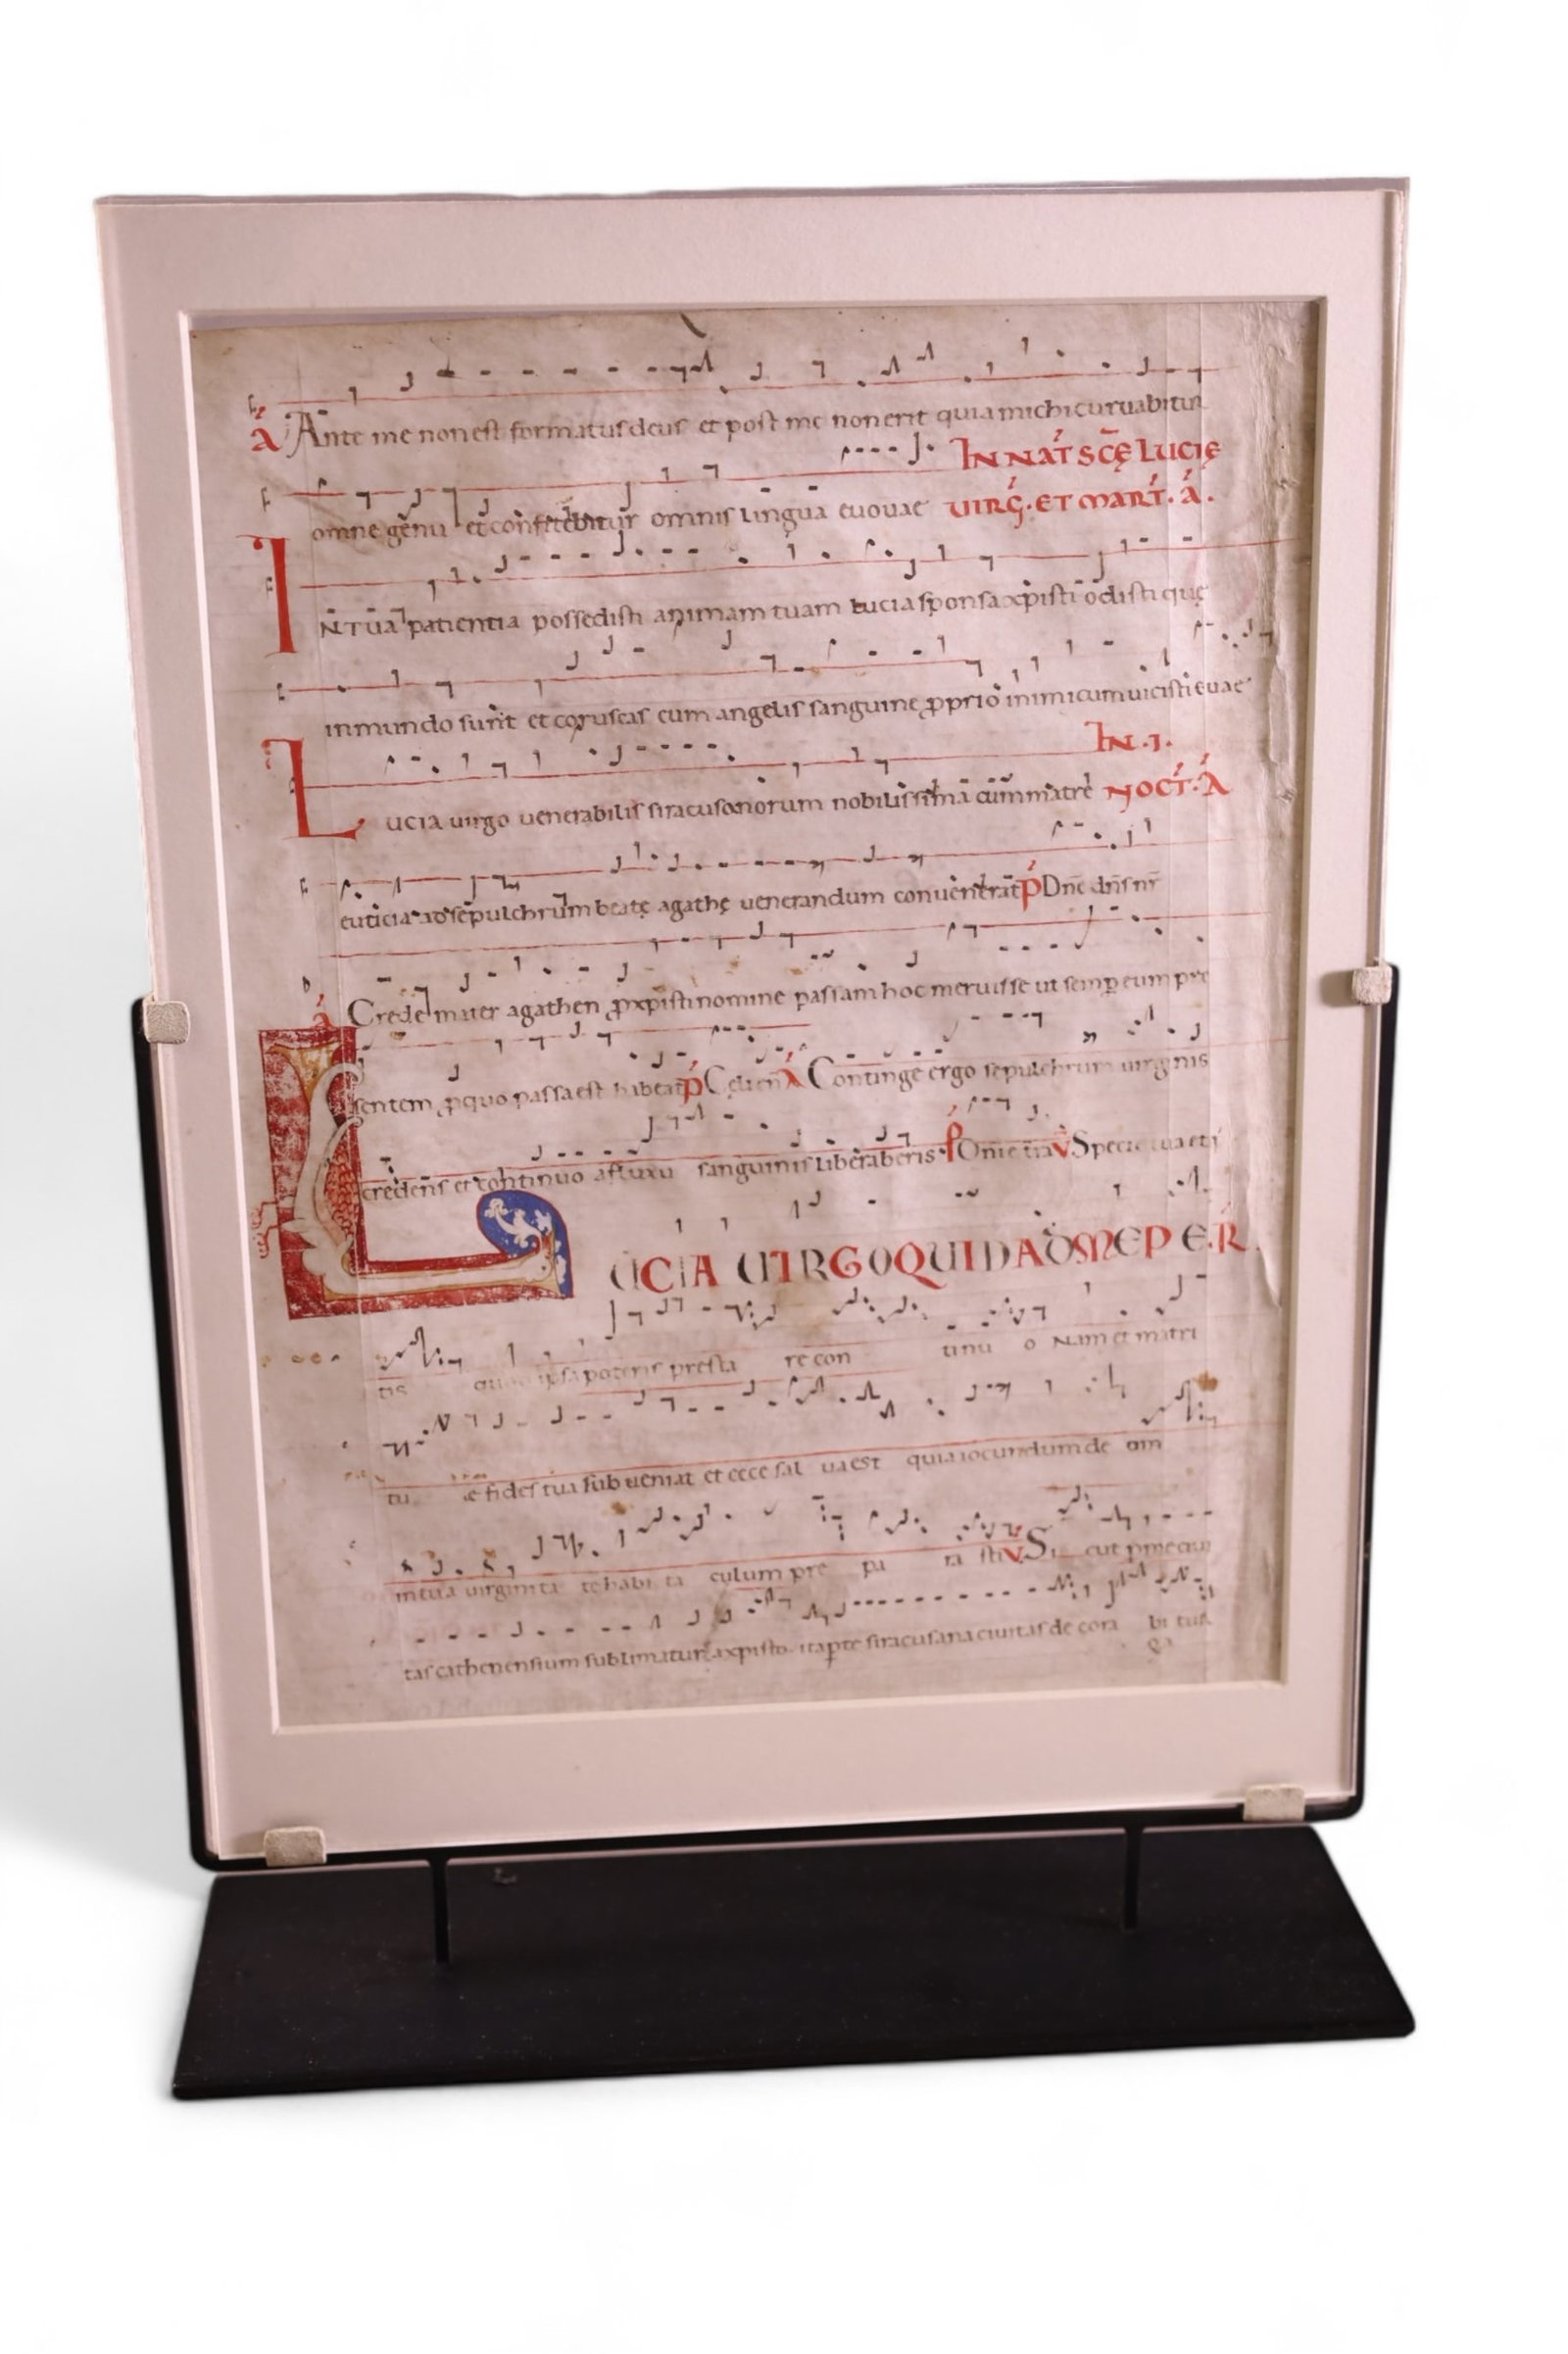 á Ante me non est formatus deus et post me non erit quia michi curuabitur
omne genu et confitebitur omnis lingua euouae IN NAT SCĘ LUCIĘ
VIRG. ET MART. Á.
IN TUA patientia possedisti animam tuam lucia sponsa xpisti odisti quę
in mundo sunt et coruscas cum angelis sanguine proprio inimicum uicisti euae
IN .I.
Lucia uirgo uenerabilis siracusanorum nobilissima cum matre NOCT. Á
euticia ad sepulchrum beatę agathę uenerandum conuenerat P Dne dns nr
á Crede mater agathen pro xpisti nomine passam hoc meruisse ut semper eum pre
sentem pro quo passa est habeat P Celi en A Continge ergo sepulchrum uirginis
credens et continuo a fluxu sanguinis liberaberis P Dni e tra V Specie tua et
LUCIA UIRGO QUID A ME PE R
tis quod ipsa poteris presta re con tinu o Nam et matri
tu e fides tua subueniat et ecce sal ua est quia iocundum de o
in tua uirginita te habi ta culum pre pa ra sti V Si cut per me ciui
tas cathenensium sublimatur a xpisto ita per te siracusana ciuitas de cora bi tur